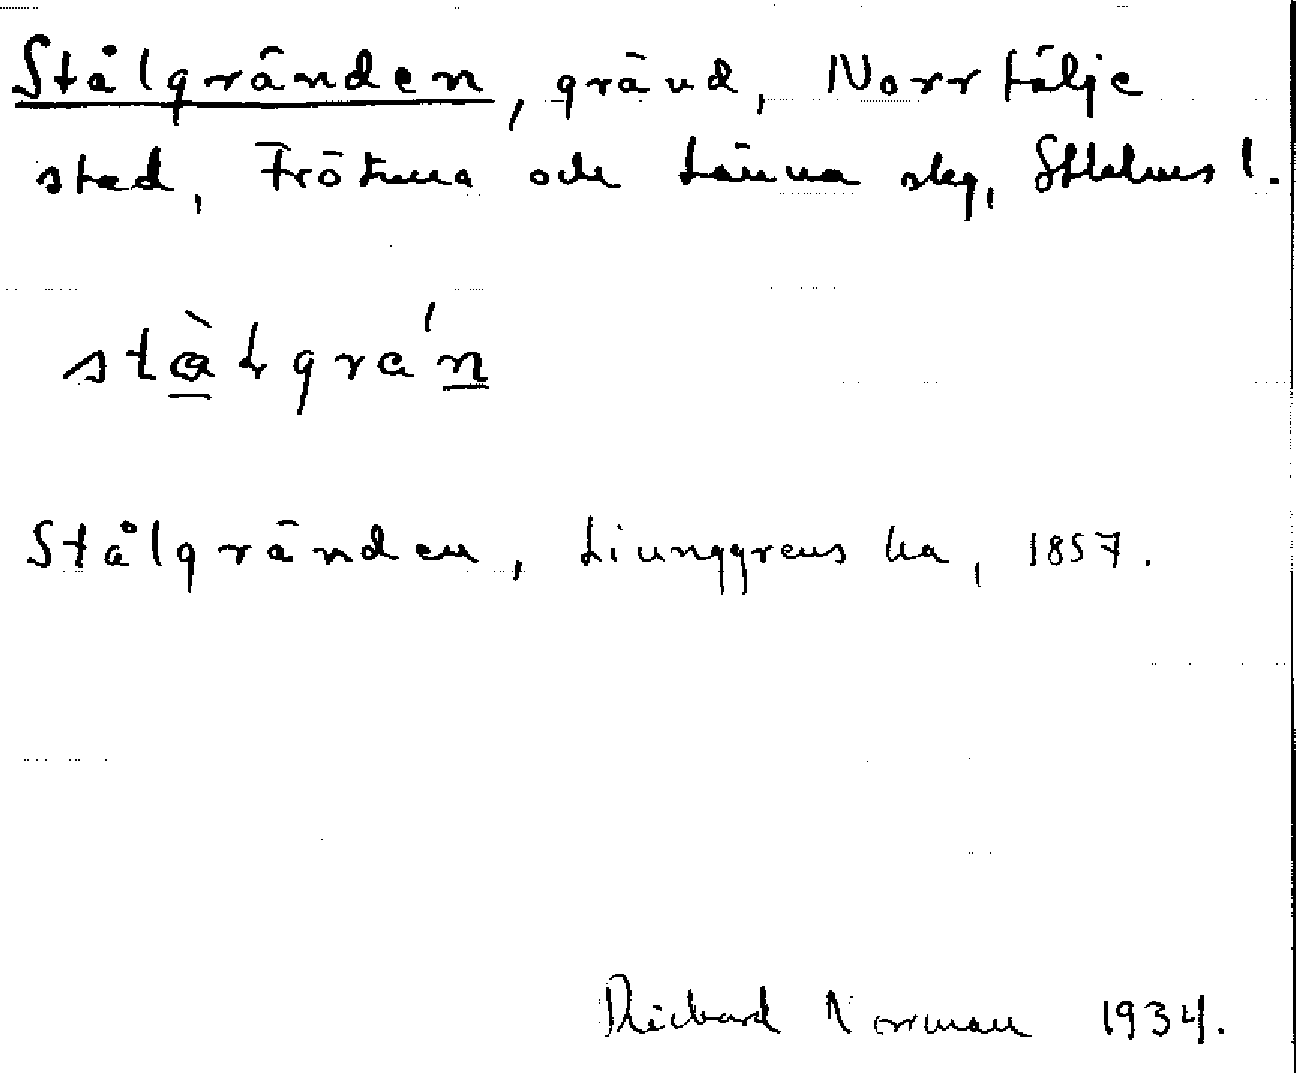 Stålgränden, gränd, Norrtälje
stad, Frötuna och Länna skg, Sthlms l.
stà̱lgrá̱n
Stålgränden, Liunggrens ka, 1857.
Rickard Norman 1934.